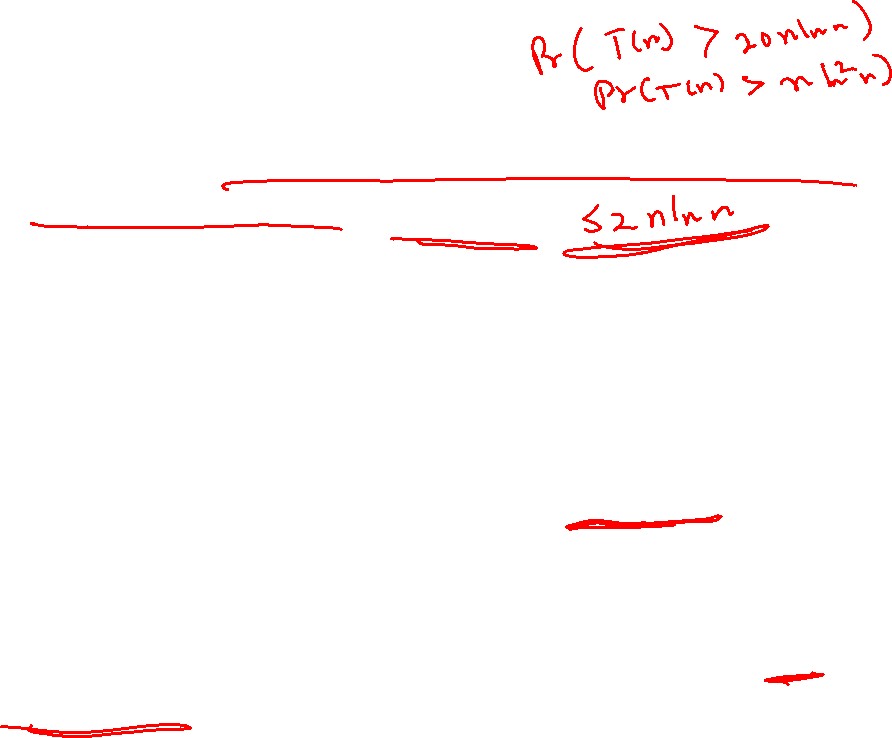 Pr( T(n) > 20nlnn)
Pr(T(n) > n ln²n)
≤2nlnn